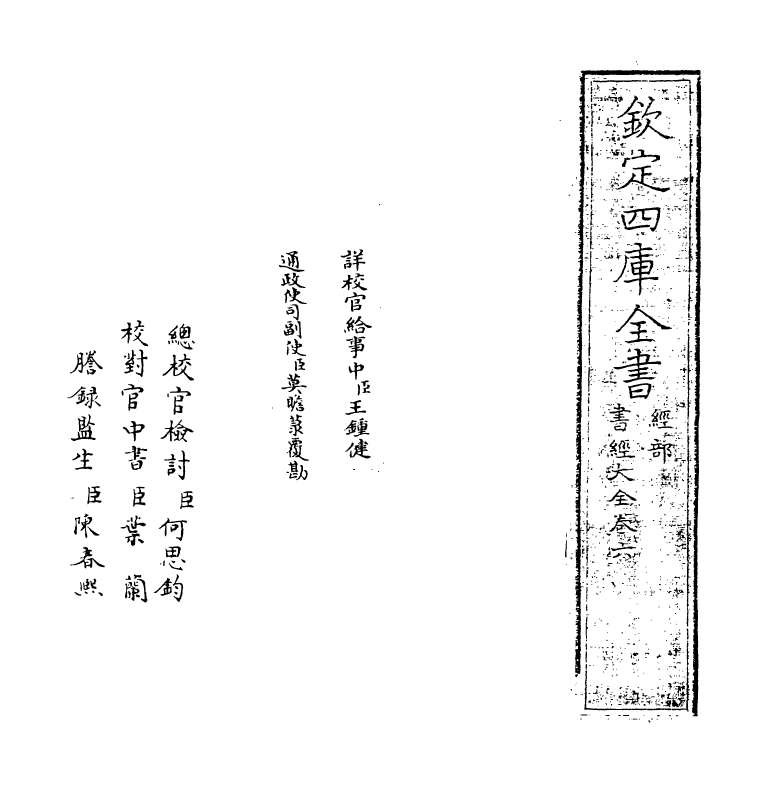 欽定四庫全書
經部
書經大全卷六
詳校官給事中臣王鍾健
通政使司副使臣莫瞻菉覆勘
總校官檢討臣何思鈞
校對官中書臣葉蘭
謄録監生臣陳春熙